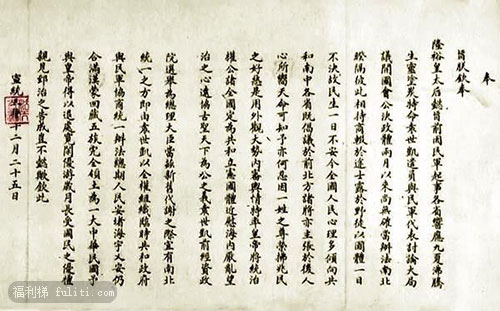 奉
旨朕欽奉
隆裕皇太后懿旨前因民軍起事各省響應九夏沸騰
生靈塗炭特命袁世凱遣員與民軍代表討論大局
議開國會公決政體兩月以來尚無確當辦法南北
暌隔彼此相持商輟於途士露於野徒以國體一日
不決故民生一日不安今全國人民心理多傾向共
和南中各省既倡議於前北方諸將亦主張於後人
心所嚮天命可知予亦何忍因一姓之尊榮拂兆民
之好惡是用外觀大勢內審輿情特率皇帝將統治
權公諸全國定為共和立憲國體近慰海內厭亂望
治之心遠協古聖天下為公之義袁世凱前經資政
院選舉為總理大臣當茲新舊代謝之際宜有南北
統一之方即由袁世凱以全權組織臨時共和政府
與民軍協商統一辦法總期人民安堵海宇乂安仍
合滿漢蒙回藏五族完全領土為一大中華民國予
與皇帝得以退處寬閒優游歲月長受國民之優禮
親見郅治之告成豈不懿歟欽此
宣統十二月二十五日
福利梯 fuliti.com